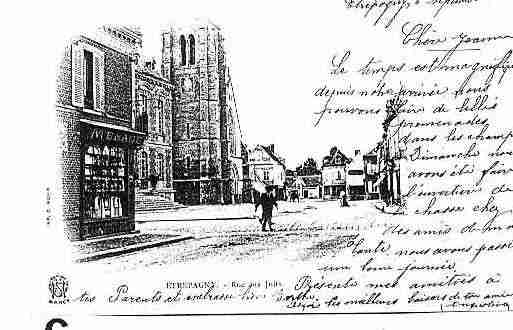 Etrepagny
Chère Jeanne
Le temps est magnifique
depuis notre arrivée nous
pouvons faire de belles
promenades
dans les champs
Dimanche nous
avons été faire
l'ouverture de
la chasse chez
des amis de ma
tante nous avons passé
une bonne journée.
ÉTRÉPAGNY. - Rue aux Juifs
Présente mes amitiés à
tes Parents et embrasse bien
reçois les meilleurs baisers de ton amie
NANCY